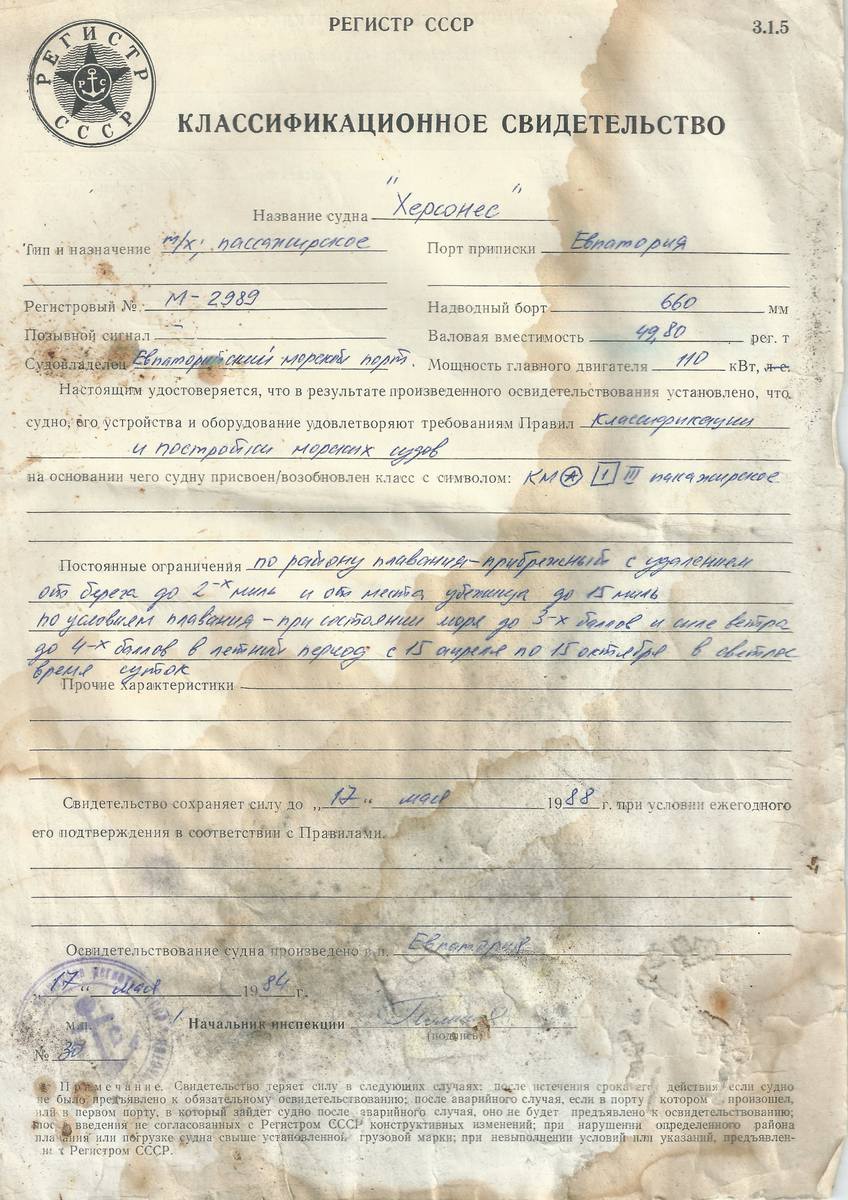 РЕГИСТР СССР
3.1.5
РЕГИСТР СССР
РС
КЛАССИФИКАЦИОННОЕ СВИДЕТЕЛЬСТВО
Название судна "Херсонес"
Тип и назначение т/х; пассажирское Порт приписки Евпатория
Регистровый № М-2989 Надводный борт 660 мм
Позывной сигнал – Валовая вместимость 49,80 рег. т
Судовладелец Евпаторийский морской порт. Мощность главного двигателя 110 кВт, л.с.
Настоящим удостоверяется, что в результате произведенного освидетельствования установлено, что
судно, его устройства и оборудование удовлетворяют требованиям Правил классификации
и постройки морских судов
на основании чего судну присвоен/возобновлен класс с символом: КМ ★ 1 III пассажирское
Постоянные ограничения по району плавания – прибрежный с удалением
от берега до 2-х миль и от места убежища до 15 миль
по условиям плавания – при состоянии моря до 3-х баллов и силе ветра
до 4-х баллов в летний период с 15 апреля по 15 октября в светлое
время суток
Прочие характеристики
Свидетельство сохраняет силу до „17" мая 1988 г. при условии ежегодного
его подтверждения в соответствии с Правилами.
Освидетельствование судна произведено в п. Евпатория
„17" мая 1984 г.
М.П. Начальник инспекции
(подпись)
№ 30
Примечание. Свидетельство теряет силу в следующих случаях: после истечения срока его действия если судно
не было предъявлено к обязательному освидетельствованию; после аварийного случая, если в порту котором произошел,
или в первом порту, в который зайдет судно после аварийного случая, оно не будет предъявлено к освидетельствованию;
после введения не согласованных с Регистром СССР конструктивных изменений; при нарушении определенного района
плавания или погрузке судна свыше установленной грузовой марки; при невыполнении условий или указаний, предъявлен-
ных Регистром СССР.